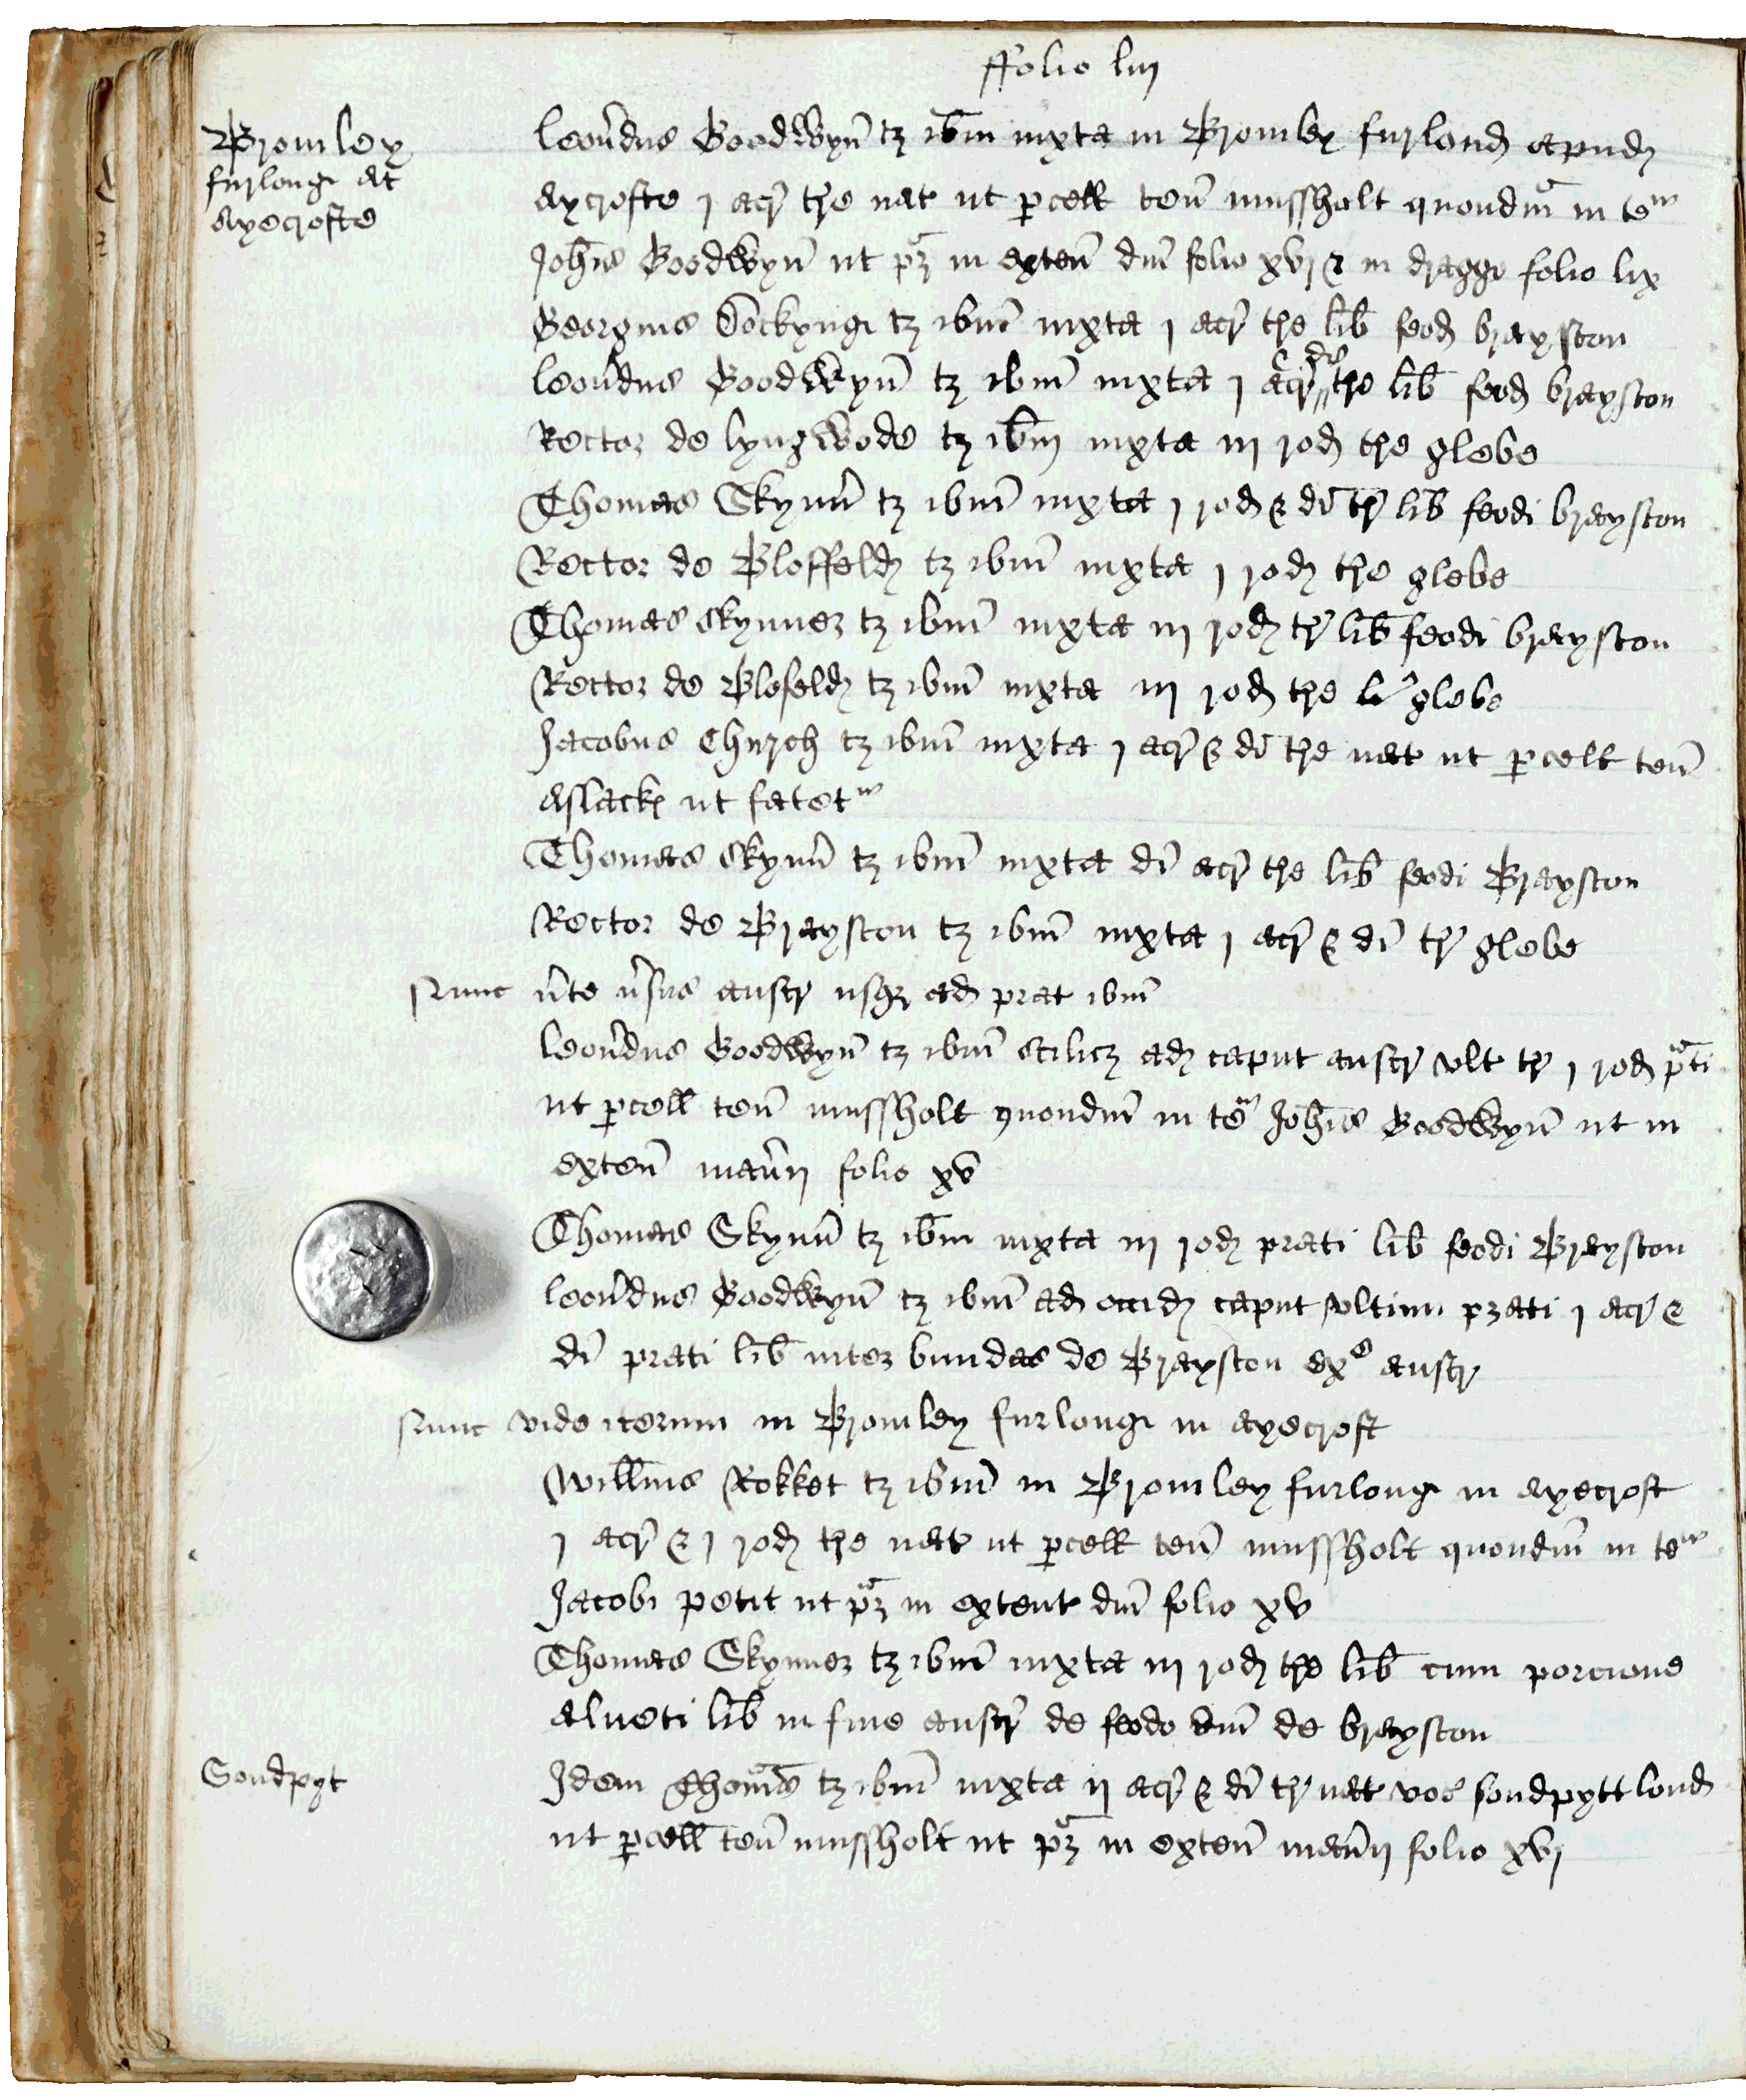 ffolio liij
Bromley
furlong at
Ayecrofte
Leoñdus Goodwyñ tz ib̄m iuxta in Bromley furlond apud
Aycrofte j acr̃ tre nat ut pcell teñ mussholt quondm̃ in teur
Joh̄is Goodwyñ ut pz in exteñ dñi folio xvj & in dragge folio lix
Georgius Dockyng tz ibm̃ iuxta j acr̃ tre lib̄ feod brayston
Leoñdus Goodwyñ tz ibm̃ iuxta j acr̃ di tre lib̄ feod brayston
Rector de lyngwode tz ib̄m iuxta iij rod tre glebe
Thomas Skynñ tz ibm̃ iuxta j rod & di tr̃ lib̄ feodi brayston
Rector de Bloffeld tz ibm̃ iuxta j rod tre glebe
Thomas Skynner tz ibm̃ iuxta iij rod tr̃ lib̄ feodi brayston
Rector de Blofeld tz ibm̃ iuxta iij rod tre glebe
Jacobus Church tz ibm̃ iuxta j acr̃ & di tre nat ut pcell teñ
Aslack ut fatetur
Thomas Skynñ tz ibm̃ iuxta di acr̃ tre lib̄ feodi Brayston
Rector de Brayston tz ibm̃ iuxta j acr̃ & di tr̃ glebe
Nunc ṽte ṽsus austr̃ usqz ad prat ibm̃
Leoñdus Goodwyñ tz ibm̃ scilicz ad caput austr̃ ult tr̃ j rod pti
ut pcell teñ mussholt quondm̃ in teur Joh̄is Goodwyñ ut in
exteñ mañij folio xv
Thomas Skynñ tz ib̄m iuxta iij rod prati lib̄ feodi Brayston
Leoñdus Goodwyñ tz ibm̃ ad occid caput ultimi prati j acr̃ &
di prati lib̄ inter bundas de Brayston exe austr̃
Nunc vide iterum in Bromley furlong in ayecroft
Will̄ms Rokket tz ibm̃ in Bromley furlong in ayecroft
j acr̃ & j rod tre nat ut pcell teñ mussholt quondm̃ in teur
Jacobi petit ut pz in extent dñi folio xv
Thomas Skynner tz ibm̃ iuxta iij rod tre lib̄ cum porcione
alneti lib̄ in fine austr̃ de feodo dñi de brayston
Sondpyt
Idem Thomas tz ibm̃ iuxta ij acr̃ & di tr̃ nat voc sondpytt lond
ut pcell teñ mussholt ut pz in exteñ mañij folio xvj